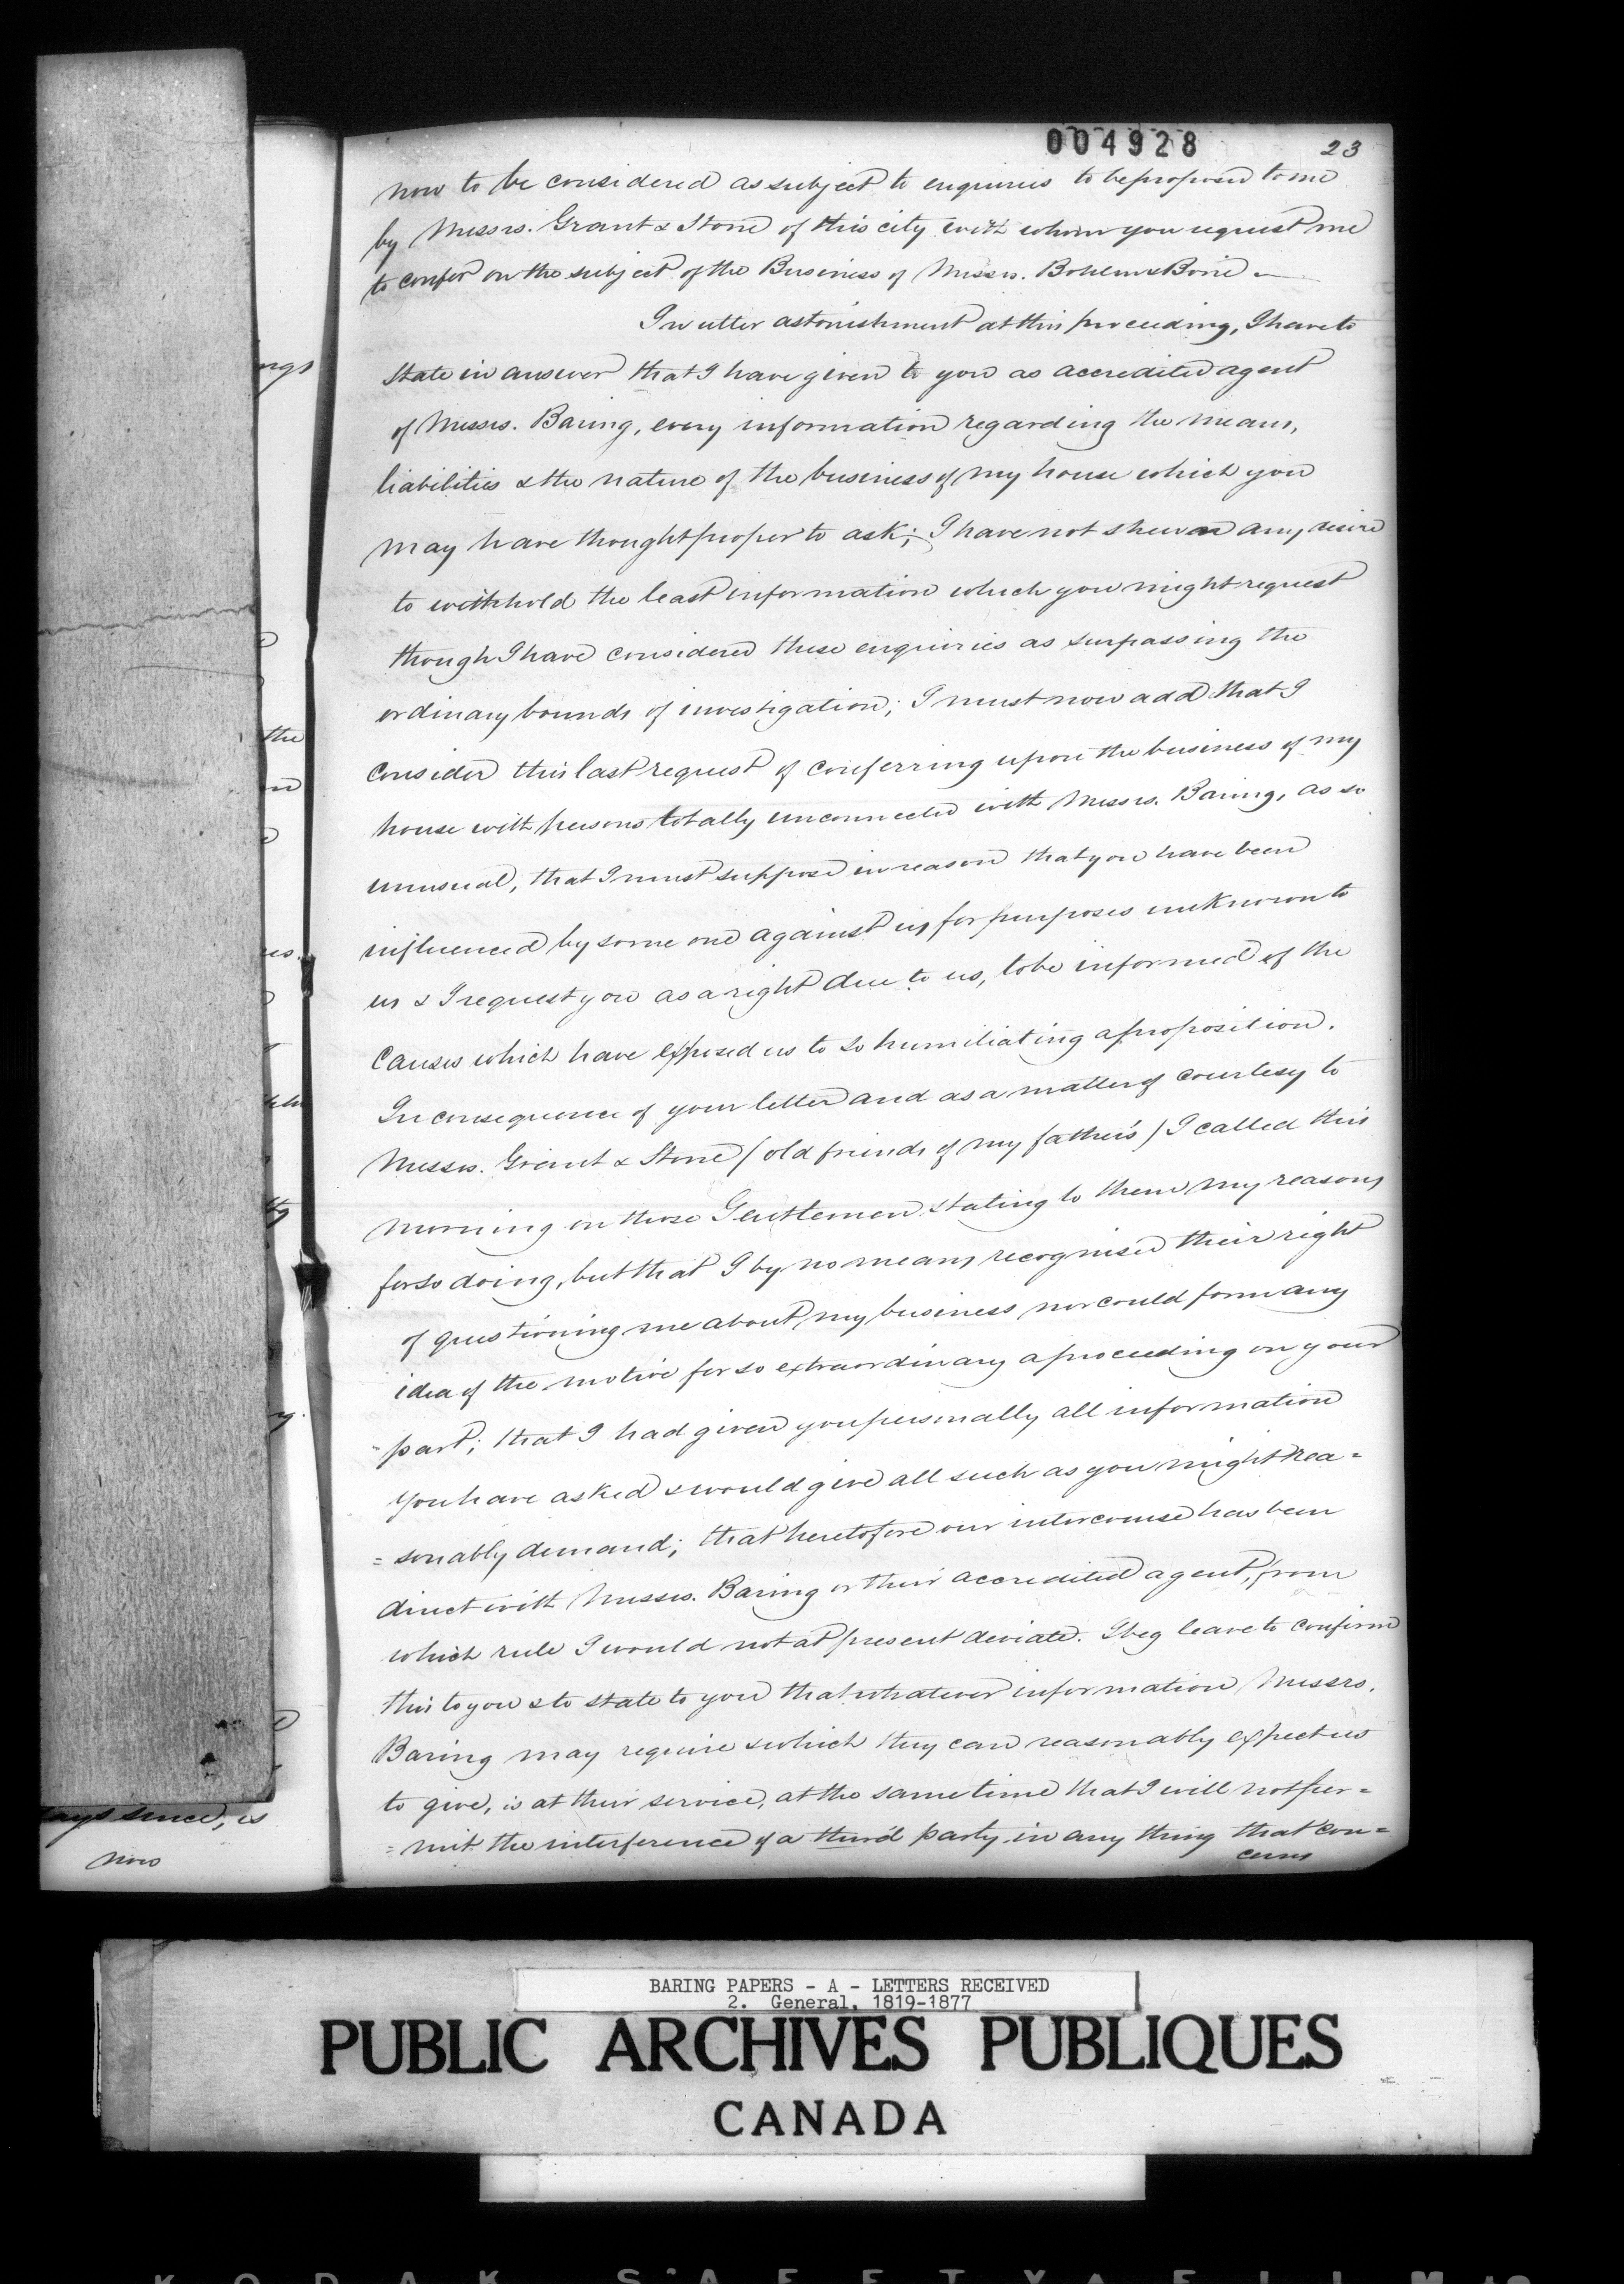 004928
23
now to be considered as subject to enquiries to be proposed to me
by Messrs. Grant & Stone of this city with whom you request me
to confer on the subject of the Business of Messrs. Bohlen & Borie –
In utter astonishment at this proceeding, I have to
state in answer that I have given to you as accredited agent
of Messrs. Baring, every information regarding the means,
liabilities & the nature of the business of my house which you
may have thought proper to ask; I have not shewn any desire
to withhold the least information which you might request
though I have considered these enquiries as surpassing the
ordinary bounds of investigation; I must now add that I
consider this last request of conferring upon the business of my
house with persons totally unconnected with Messrs. Baring, as so
unusual, that I must suppose in reason that you have been
influenced by some one against us for purposes unknown to
us & I request you as a right due to us, to be informed of the
causes which have exposed us to so humiliating a proposition.
In consequence of your letter and as a matter of courtesy to
Messrs. Grant & Stone (old friends of my father's) I called this
morning on those Gentlemen stating to them my reasons
for so doing, but that I by no means recognised their right
of questioning me about my business nor could form any
idea of the motive for so extraordinary a proceeding on your
part; that I had given you personally all information
you have asked & would give all such as you might rea=
=sonably demand; that heretofore our intercourse has been
direct with Messrs. Baring or their accredited agent, from
which rule I would not at present deviate. I beg leave to confirm
this to you & to state to you that whatever information Messrs.
Baring may require & which they can reasonably expect us
to give, is at their service, at the same time that I will not per=
=mit the interference of a third party in any thing that con=
cerns
ngs
the
us.
ty
y.
ays since, is
now
BARING PAPERS - A - LETTERS RECEIVED
2. General, 1819-1877
PUBLIC ARCHIVES PUBLIQUES
CANADA
KODAK SAFETY FILM